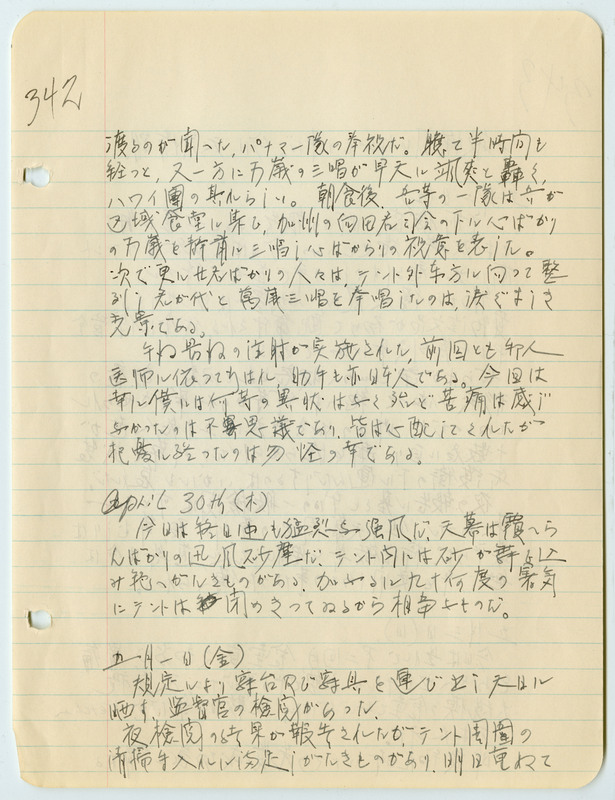 342
渡るのが聞へた、パナマー隊の奉祝だ。聴て半時間も
経つと、又一方に万歳の三唱が早天に颯爽と轟く、
ハワイ團の其れらしい。朝食後、吾等の一隊は吾が
区域食堂に集ひ、加州の向田君司会の下に心ばかり
の万歳を幹前に三唱し心ばからりの祝意を表した。
次で更に廿名ばかりの人々は、テント外東方に向って整
列し君が代と萬歳三唱を奉唱したのは、涙ぐましき
光景である。
の注射が実施された、前回とも邦人
医師に依って行はれ、助手も亦日本人である。今回は
幸に僕には何等の異状はなく殆ど苦痛は感じ
なかったのは不思議であり、皆は心配してくれたが
杞憂に終ったのは勿怪の幸である。
April 30th (木)
今日は終日中も猛烈な強風だ、天幕は覆へら
んばかりの迅風砂塵だ、テント内には砂が舞ひ込
み絶へがたきものがある、加ふるに九十何度の暑気
にテントは閉めきってゐるから相当なものだ。
五月一日(金)
規定により寝台及び寝具を運び出し天日に
晒す、監督官の検閲があった、
夜検閲の結果が報告されたが、テント周圍の
清掃手入れに満足しがたきものがあり、明日重ねて